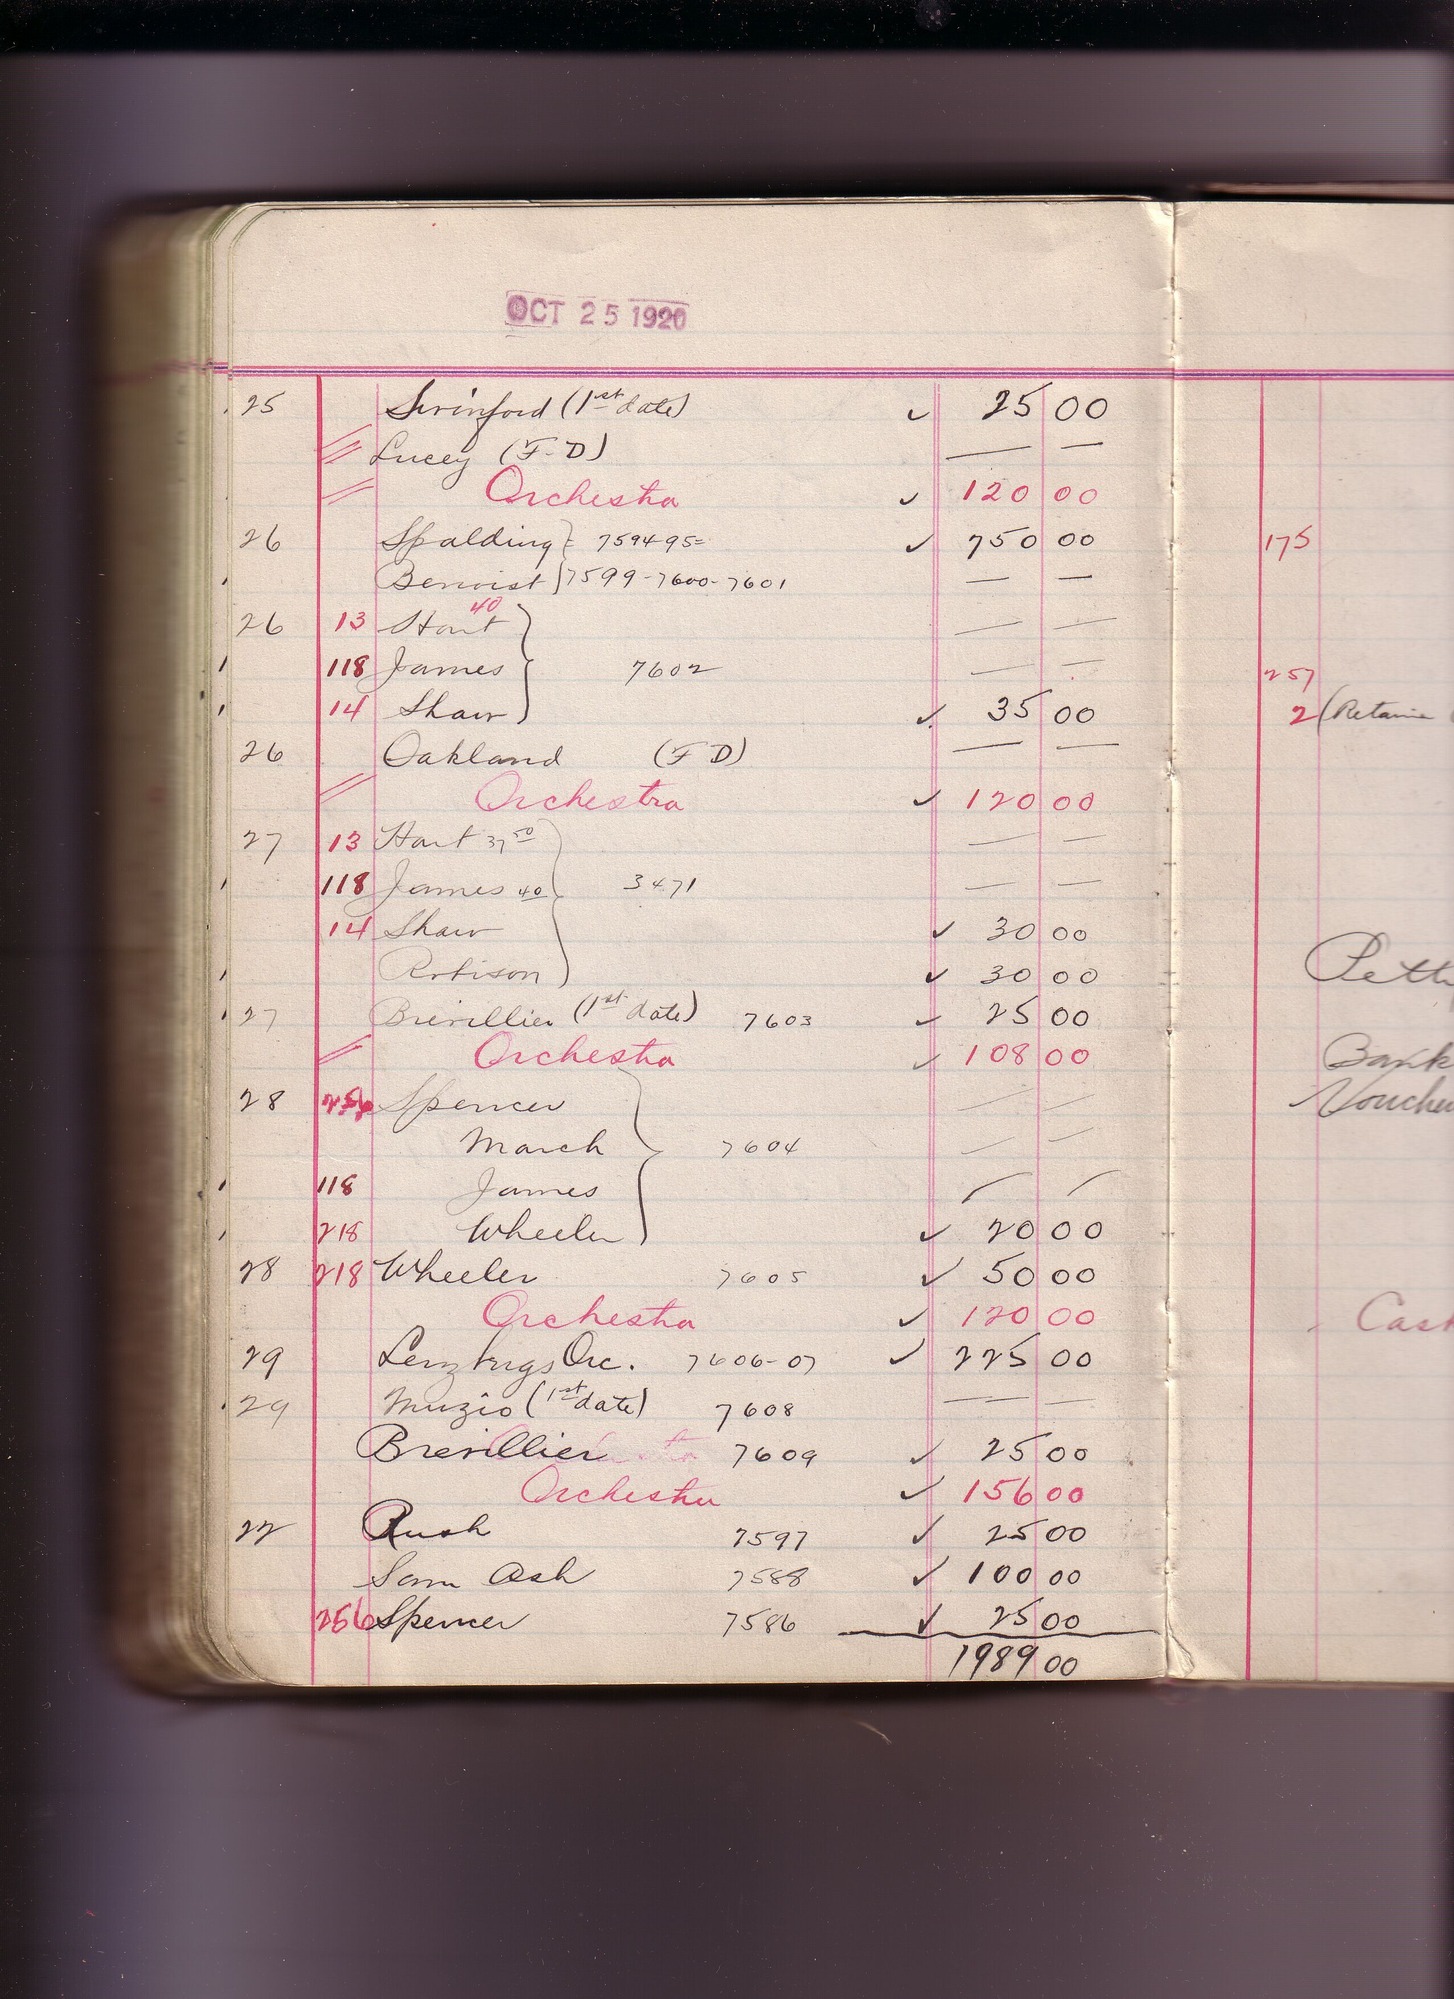 OCT 25 1920
25 Swinford (1st date) ✓ 25 00
Lucey (F-D) — —
Orchestra ✓ 120 00
26 Spalding } 7594 95= ✓ 750 00 175
Benoist } 7599-7600-7601 — —
40
26 13 Hart — —
118 James 7602 — — 257
14 Shaw ✓ 35 00 2 (Retaine
26 Oakland (F D) — —
Orchestra ✓ 120 00
27 13 Hart 37 50 — —
118 James 40 3471 — —
14 Shaw ✓ 30 00
Robison ✓ 30 00
27 Brevillier (1st date) 7603 ✓ 25 00
Orchestra ✓ 108 00
28 256 Spencer — —
March 7604 — —
118 James — —
218 Wheeler ✓ 20 00
28 218 Wheeler 7605 ✓ 50 00
Orchestra ✓ 120 00
29 Lenzbergs Orc. 7606-07 ✓ 225 00
29 Muzio (1st date) 7608 — —
Brevillier 7609 ✓ 25 00
Orchestra ✓ 156 00
22 Rush 7597 ✓ 25 00
Sam Ash 7588 ✓ 100 00
256 Spencer 7586 ✓ 25 00
1989 00
Bank
Voucher